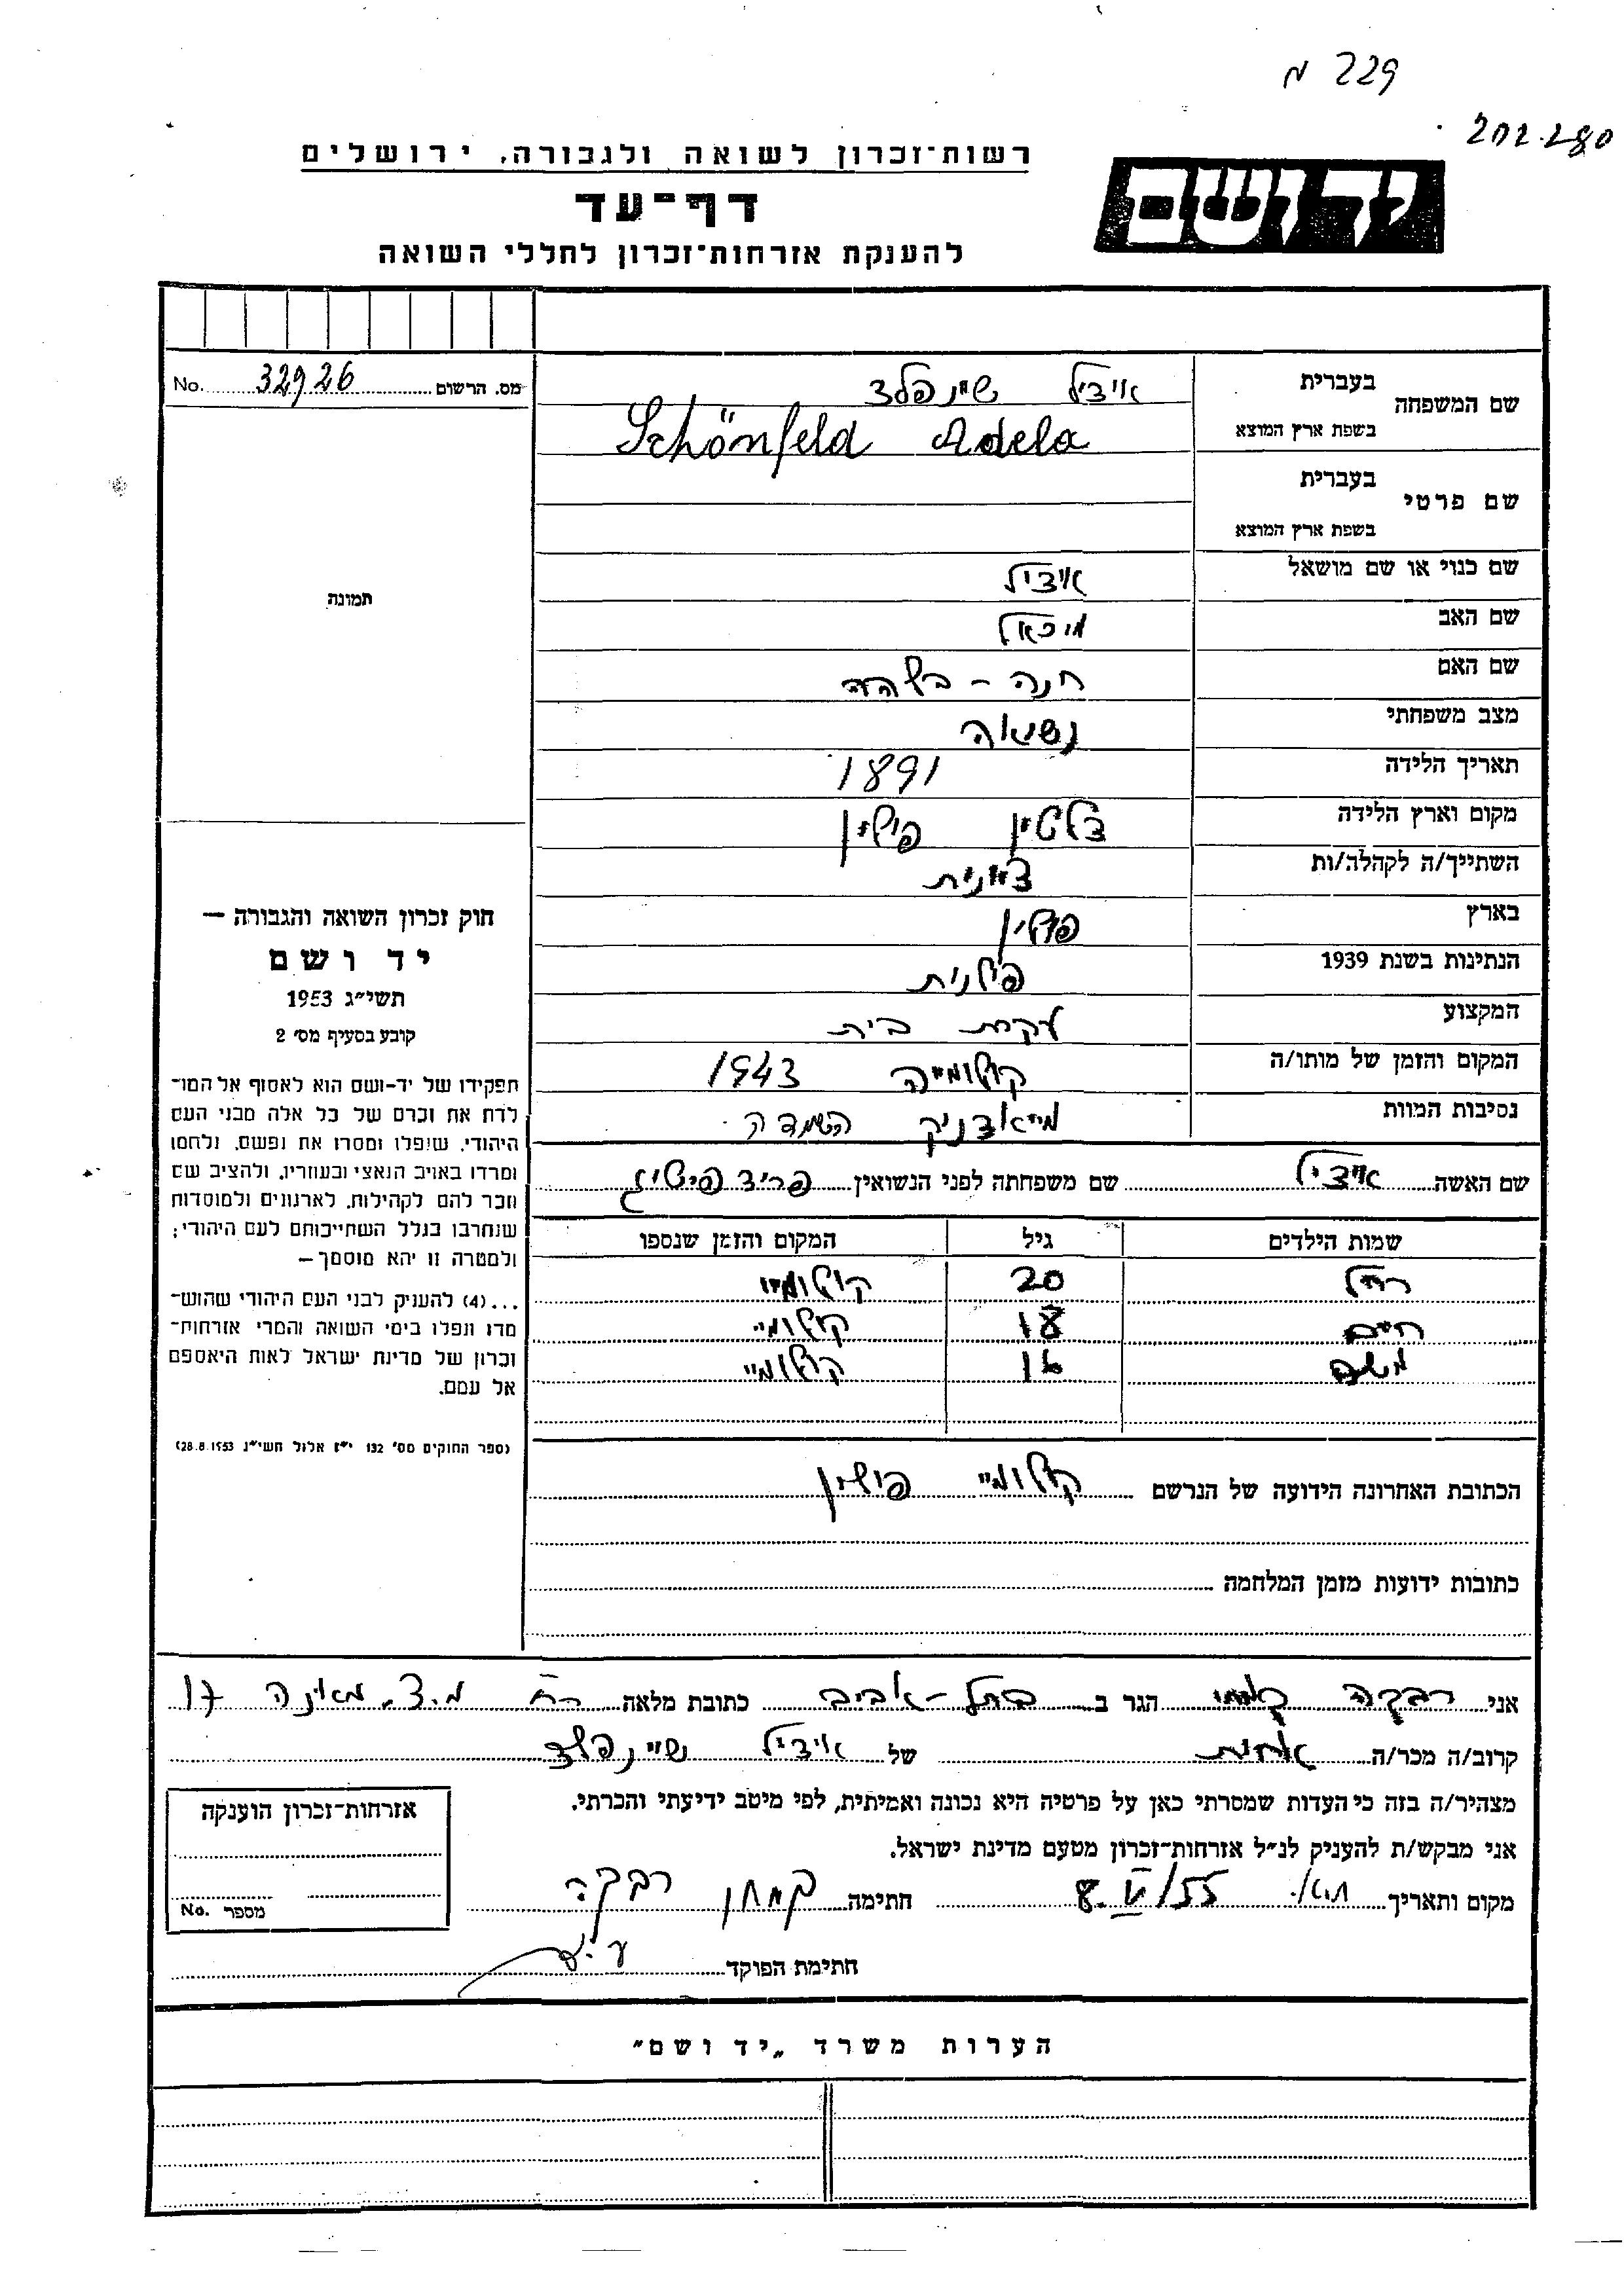 229 מ
202-280
רשות־זכרון לשואה ולגבורה, ירושלים
יד ושם
דף־עד
להענקת אזרחות־זכרון לחללי השואה
מס. הרשום 32926 No.
שם המשפחה
בעברית אידיל שיינפלד
בשפת ארץ המוצא Schönfeld Adela
שם פרטי
בעברית
בשפת ארץ המוצא
שם כנוי או שם מושאל אידיל
שם האב מיכאל
שם האם חנה -
מצב משפחתי נשואה
תאריך הלידה 1891
מקום וארץ הלידה פולין
השתייך/ה לקהלה/ות
בארץ פולין
הנתינות בשנת 1939 פולנית
המקצוע עקרת בית
המקום והזמן של מותו/ה קולומייה 1943
נסיבות המוות השמדה
שם האשה אידיל שם משפחתה לפני הנשואין
שמות הילדים גיל המקום והזמן שנספו
רחל 20 קולומיי
חיים 18 קולומיי
משה 16 קולומיי
הכתובת האחרונה הידועה של הנרשם קולומיי פולין
כתובות ידועות מזמן המלחמה
תמונה
חוק זכרון השואה והגבורה —
יד ושם
תשי״ג 1953
קובע בסעיף מס׳ 2
תפקידו של יד-ושם הוא לאסוף אל המו־
לדת את זכרם של כל אלה מבני העם
היהודי, שנפלו ומסרו את נפשם, נלחמו
ומרדו באויב הנאצי ובעוזריו, ולהציב שם
וזכר להם לקהילות, לארגונים ולמוסדות
שנחרבו בגלל השתייכותם לעם היהודי;
ולמטרה זו יהא מוסמך —
...(4) להעניק לבני העם היהודי שהוש־
מדו ונפלו בימי השואה והמרי אזרחות־
זכרון של מדינת ישראל לאות היאספם
אל עמם.
(ספר החוקים מס׳ 132 י״ז אלול תשי״ג 28.8.1953)
אני רבקה הגר ב בתל-אביב כתובת מלאה רח 17
קרוב/ה מכר/ה אחות של אידיל שיינפלד
מצהיר/ה בזה כי העדות שמסרתי כאן על פרטיה היא נכונה ואמיתית, לפי מיטב ידיעתי והכרתי.
אני מבקש/ת להעניק לנ״ל אזרחות־זכרון מטעם מדינת ישראל.
מקום ותאריך 8.V/55 חתימה רבקה
חתימת הפוקד
אזרחות־זכרון הוענקה
מספר No.
הערות משרד „יד ושם״